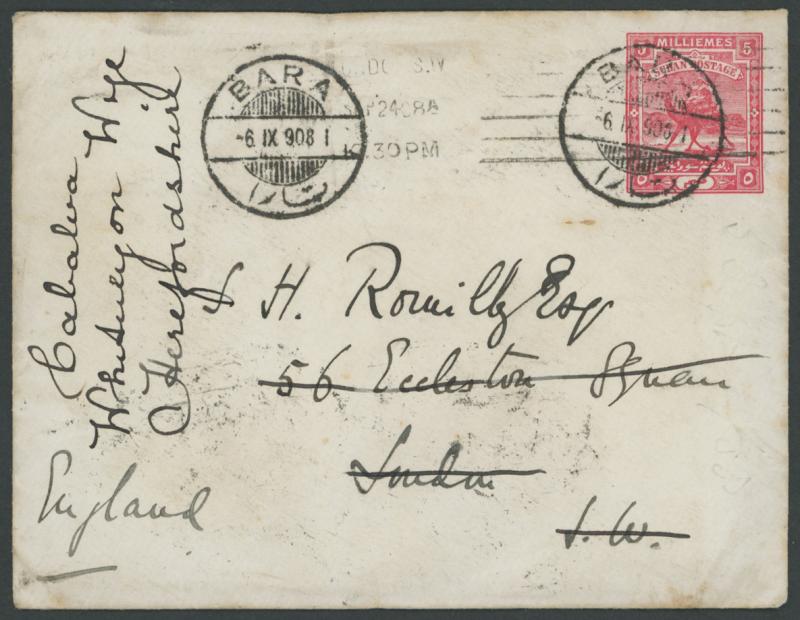 5 MILLIEMES 5
SUDAN POSTAGE
BARA
-6 IX 908 1
بارا
BARA
-6 IX 908 1
بارا
S.W
30 PM
H. Romilly Esq
56 Eccleston Square
London
S. W.
England
Cabalva
Whitney on Wye
Herefordshire